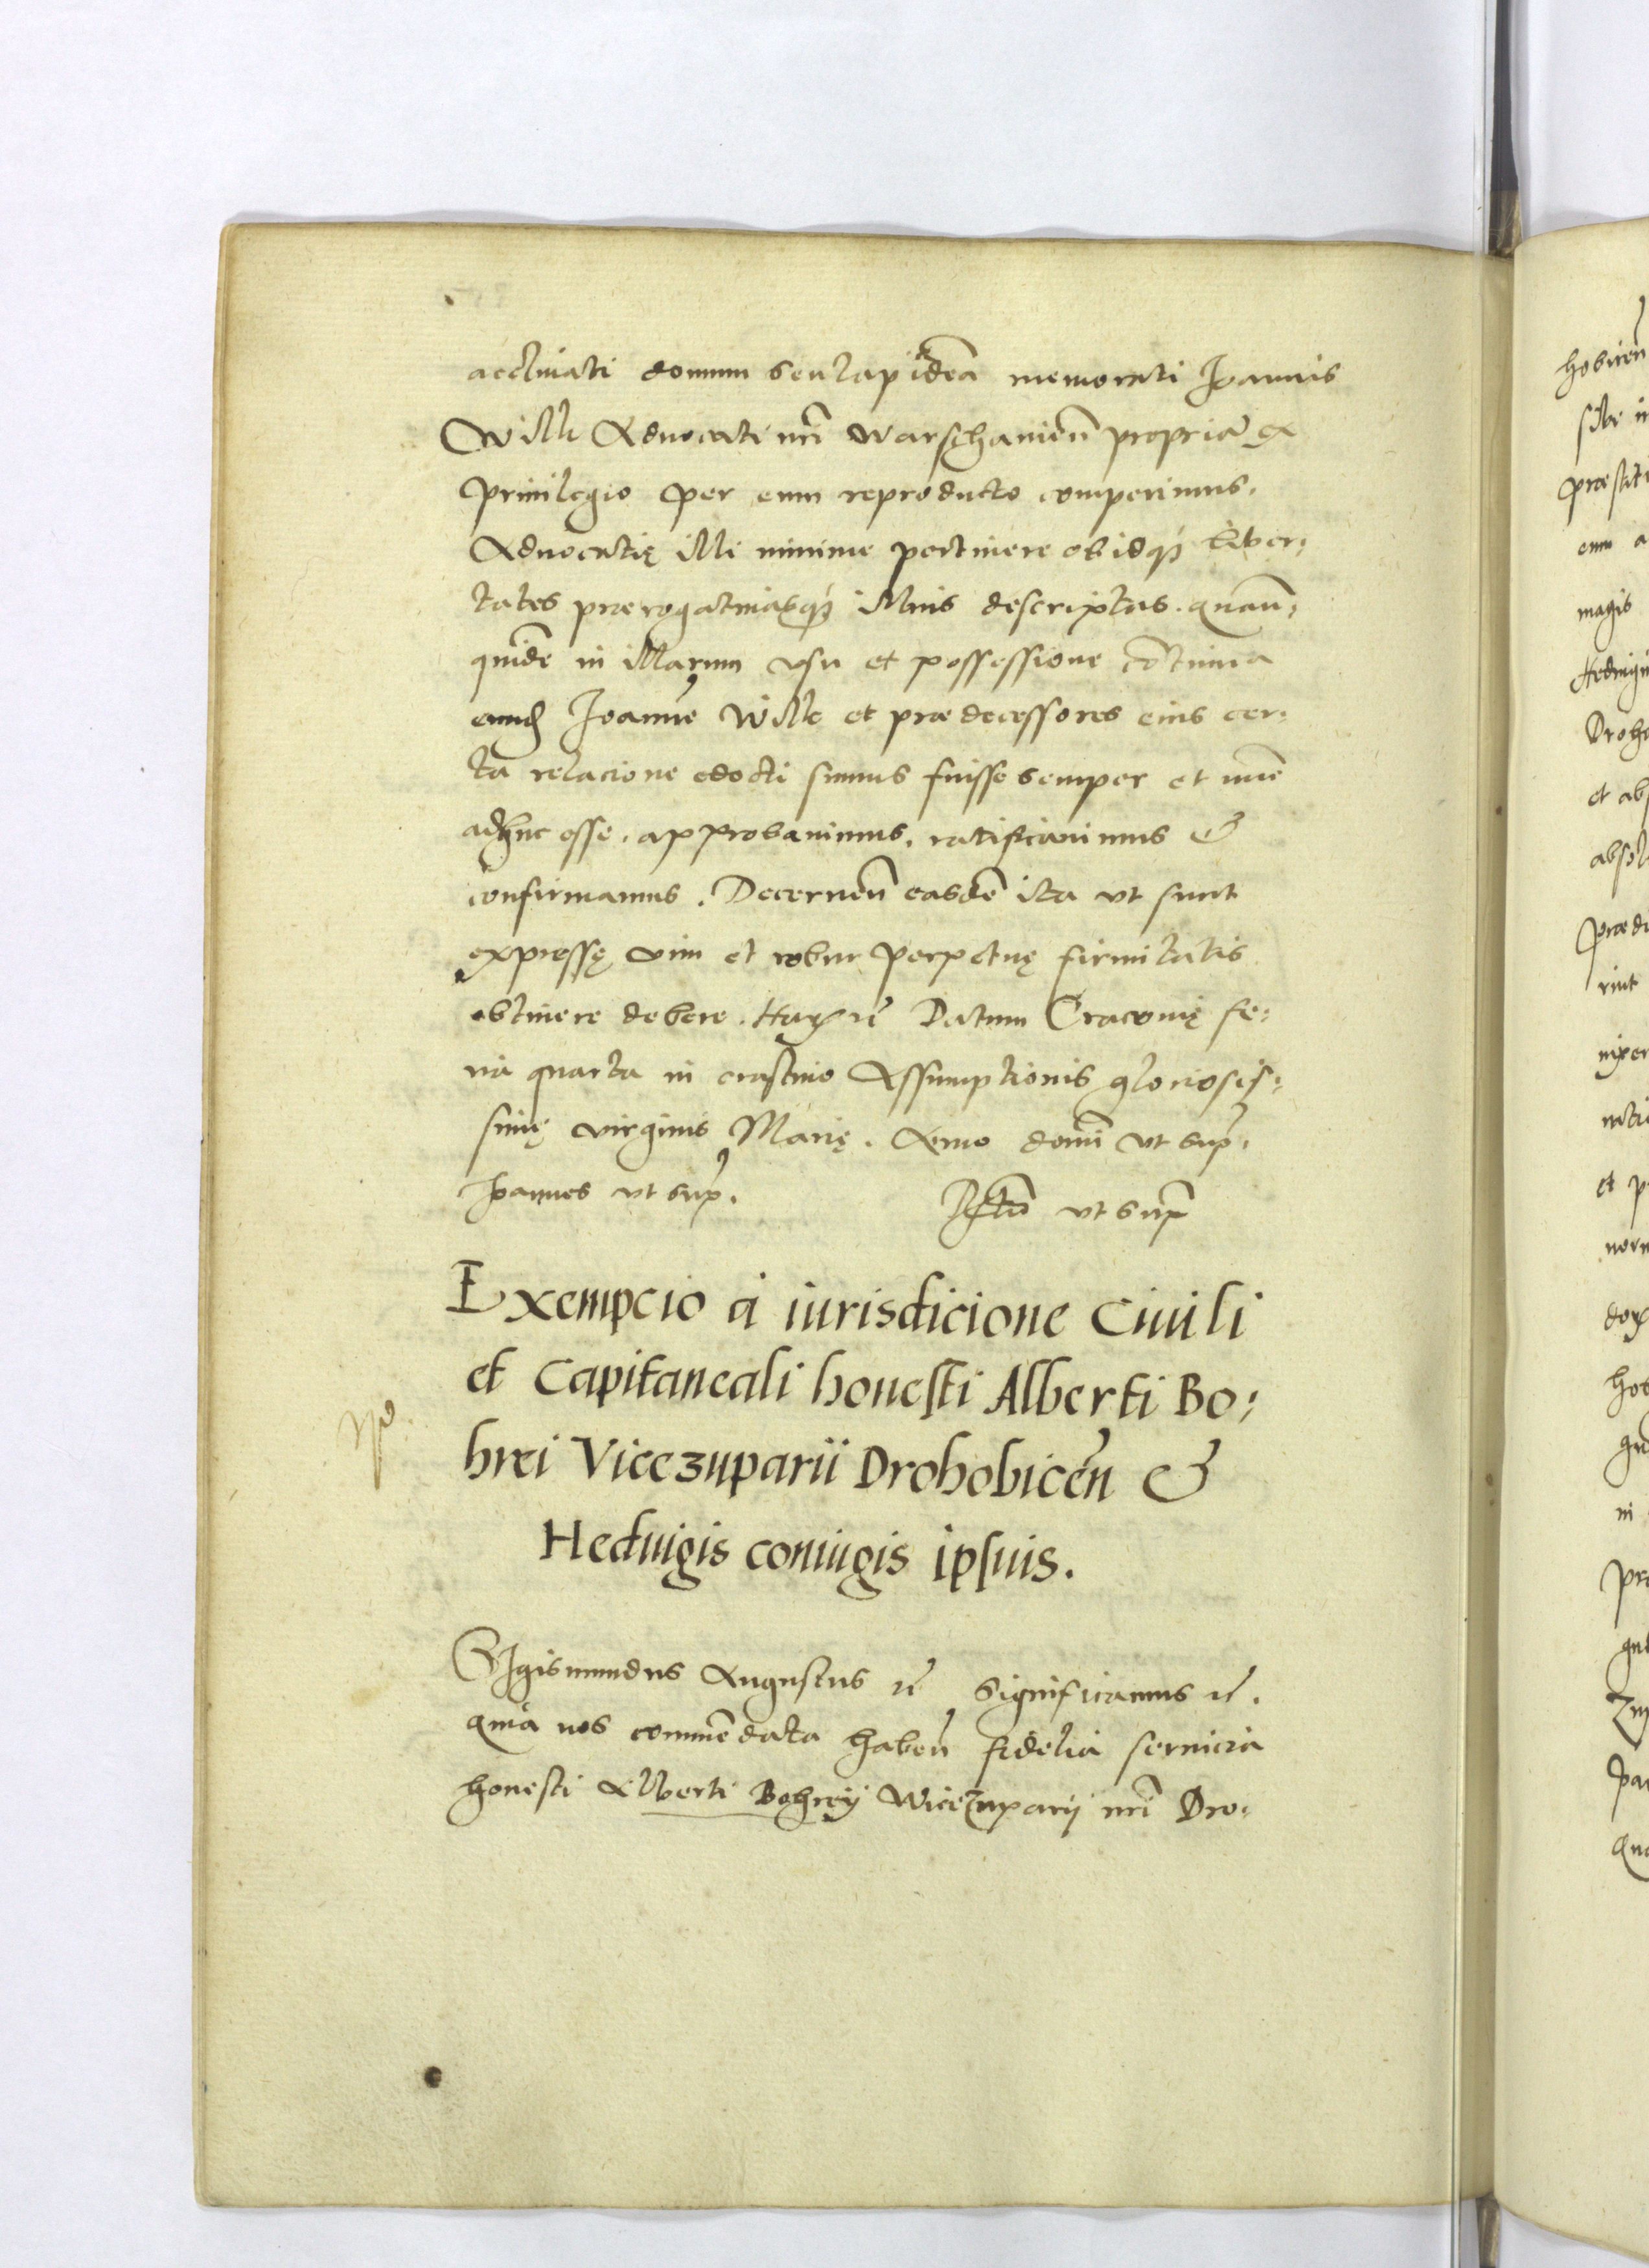 acclinati domum seu lapideã memorati Joannis
Wilk Aduocati nr̃i Warschauień propriã ex
Priuilegio per eum reproducto comperimus.
Aduocatię illi minime pertinere ob idq̃ Liber:
tates prærogatiuasq̃ illius descriptas. quañ:
quidẽ in illarum vsu et possessione cõtinua
eund Joannẽ Wilk et prædecessores eius cer:
ta relacione edocti sumus fuisse semper et nũc
adhuc esse. approbauimus. ratificauimus &
confirmamus. Decerneñ easdẽ ita vt sunt
expressę vim et robur perpetuę firmitatis
obtinere debere. Harꝝ rc̃ Datum Cracouię fe:
ria quarta in crastino Assumptionis gloriosis:
simę virginis Marię. Anno domi vt sup̃.
Joannes vt sup̃. Rltĩo vt sup̃
Exempcio a iurisdicione Ciuili
et Capitaneali honesti Alberti Bo:
hrei Vicezuparii Drohobiceñ &
Heduigis coniugis ipsuis.
Sigismundus Augustus rc̃ Significamus rc̃.
quia nos commẽdata habeñ fidelia seruicia
honesti Alberti Bohreij Wicezuparij nr̃i Dro: